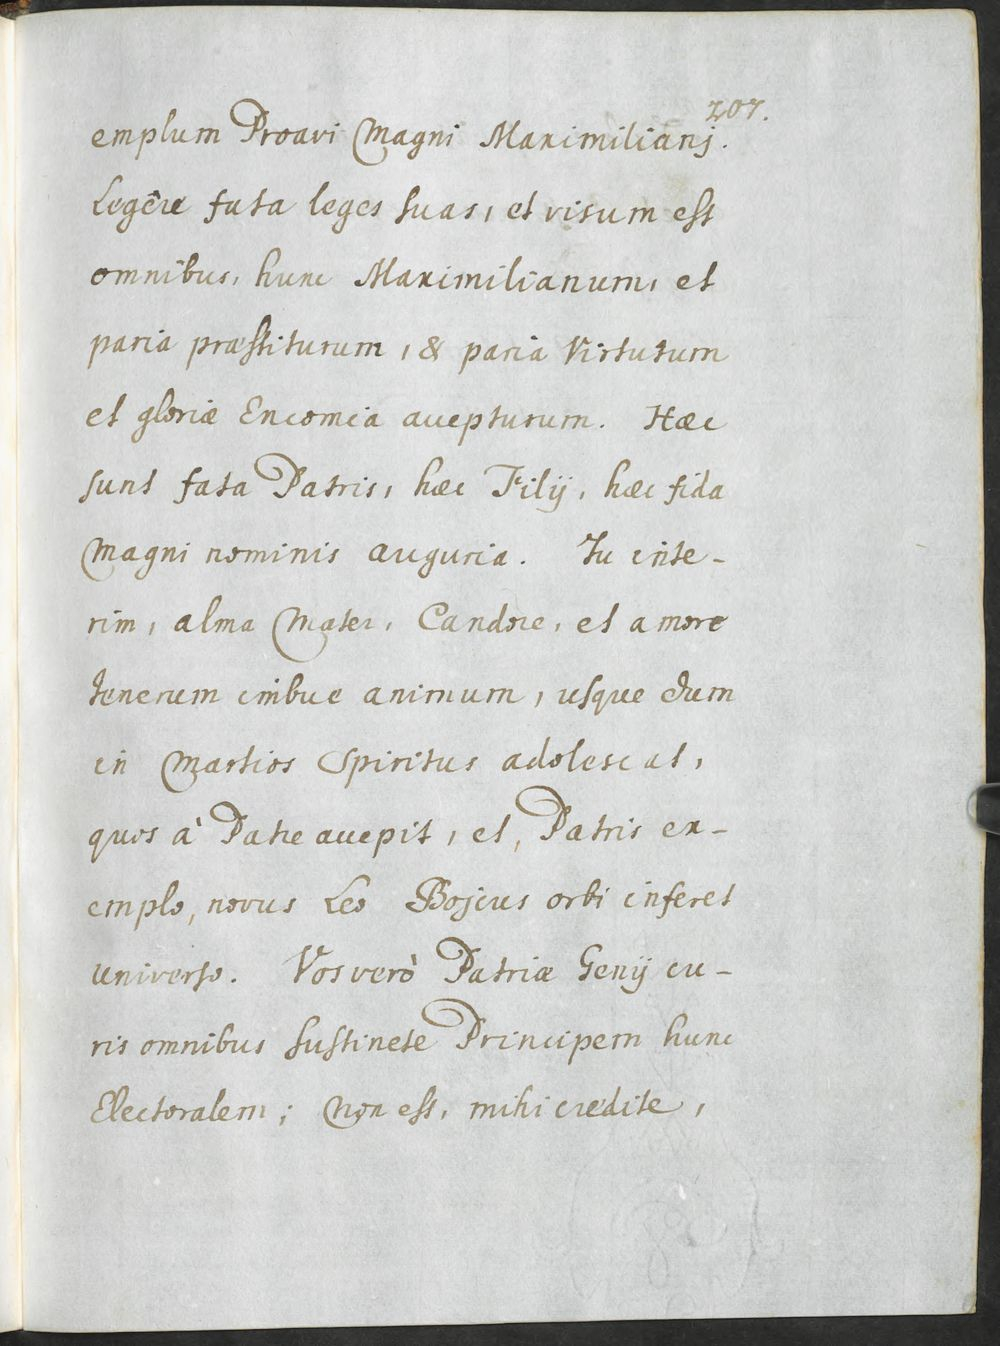 207.
emplum Proavi Magni Maximilianj.
Legêre fata leges suas, et visum est
omnibus, hunc Maximilianum, et
paria præstiturum, & paria Virtutum
et gloriæ Encomia accepturum. Hæc
sunt fata Patris, hæc Filij, hæc fida
Magni nominis auguria. Tu inte-
rim, alma Mater, Candore, et amore
tenerum imbue animum, usque dum
in Martios Spiritus adolescat,
quos à Patre accepit, et, Patris ex-
emplo, novus Leo Bojcus orbi inferet
universo. Vos verò Patriæ Genij cu-
ris omnibus sustinete Principem hunc
Electoralem; Non est, mihi credite,